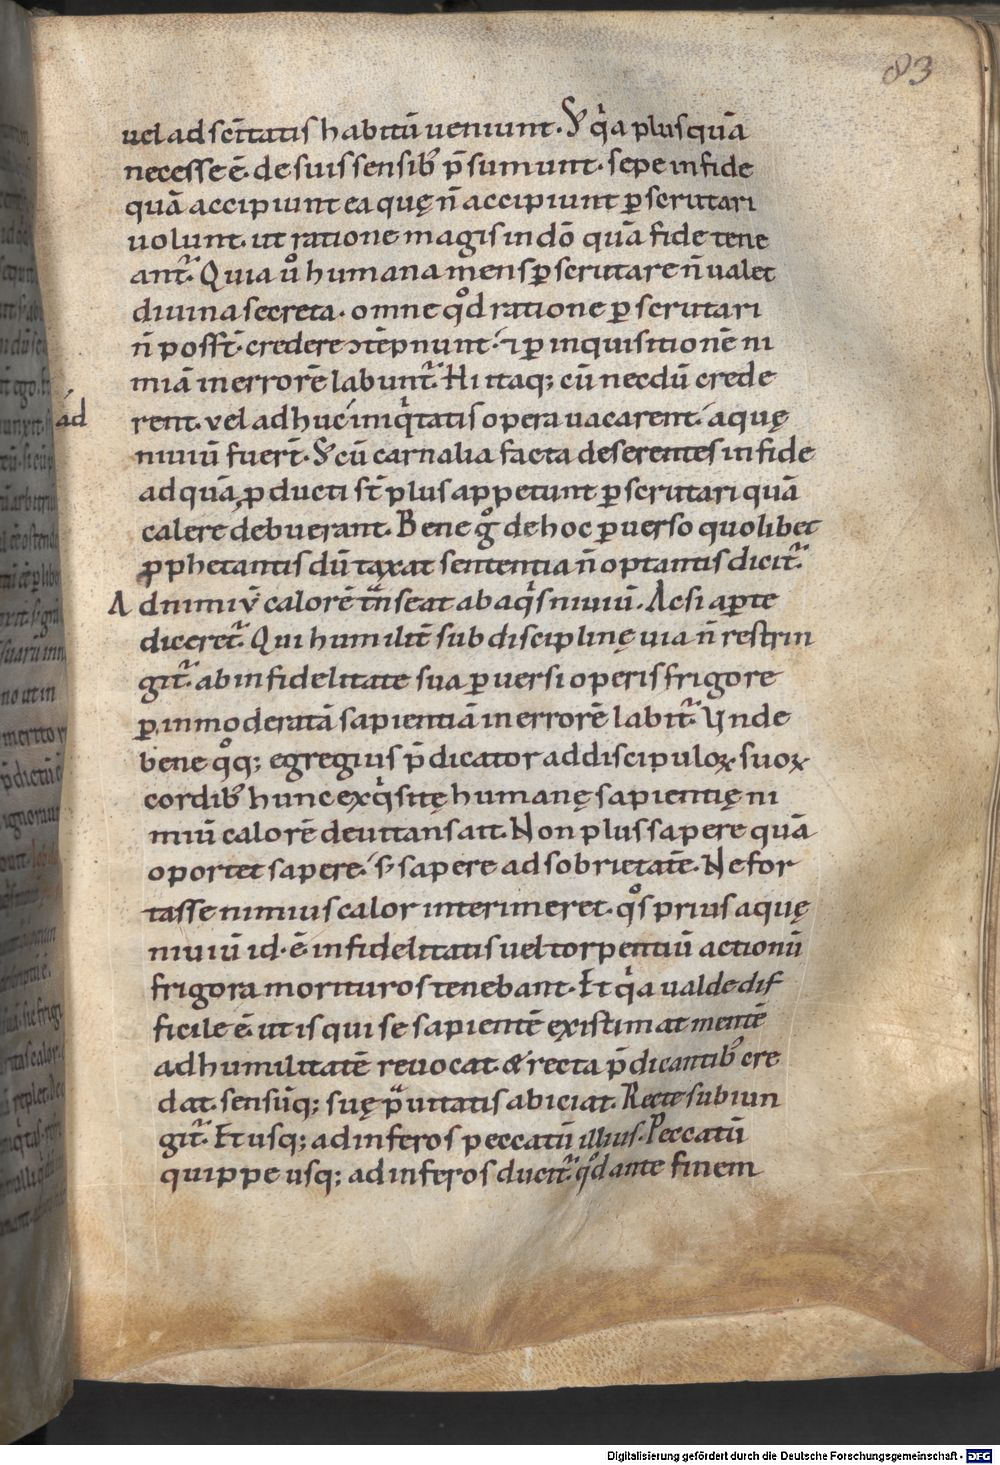 83
uel ad sc̄ıtatis habitū ueniunt. S; qͥa plusquā
necesse ē. de suis sensibꝰ p̄sumunt. sepe in fide
quā accipiunt ea quę n̄ accipiunt ꝑscrutari
uolunt. ut ratione magis in dō quā fide tene
ant᷑. Quia ů humana mens ꝑscrutare n̄ ualet
diuina secreta. omne qͦd ratione ꝑscrutari
n̄ poss̄t. credere ↄtēpnunt. & ꝑ inquisitionē ni
miā in errorē labunt᷑. Hi itaq; cū necdū crede
ád
rent. vel adhuc iniqͥtatis opera uacarent. aquę
niuiū fuer̄t. S; cū carnalia facta deserentes in fide
ad quā ꝓducti st̄ plus appetunt ꝑscrutari quā
calere debuerant. Bene gͦ de hoc ꝑuerso quolibet
ꝓphetantis dū taxat sententia n̄ optantis dicit᷑.
Ad nimiv̄ calorē tͣnseat ab aqͥs niuiū. Ac si aꝑte
diceret᷑. Qui humilit̄ sub disciplinę uia n̄ restrin
git᷑. ab infidelitate sua ꝑuersi operis frigore
ꝑ inmoderatā sapientiā in errorē labit᷑. Unde
bene qͦq; egregius p̄dicator ad discipuloꝝ suoꝝ
cordibꝰ hunc exqͥsitę humanę sapientię ni
miū calorē deuitans ait. Non plus sapere quā
oportet sapere. s; sapere ad sobrietatē. Ne for
tasse nimius calor interimeret. qͦs prius aquę
niuiū id. ē. infidelitatis uel torpentiū actionū
frigora morituros tenebant. Et qͥa ualde dif
ficile ē. ut is qui se sapientē existimat mentē
ad humilitatē reuocat. & recta p̄dicantibꝰ cre
dat. sensūq; suę pͣuitatis abiciat. Recte subiun
git᷑. Et usq; ad inferos peccatū illius. Peccatū
quippe usq; ad inferos ducit᷑. qͦd ante finem
Digitalisierung gefördert durch die Deutsche Forschungsgemeinschaft - DFG